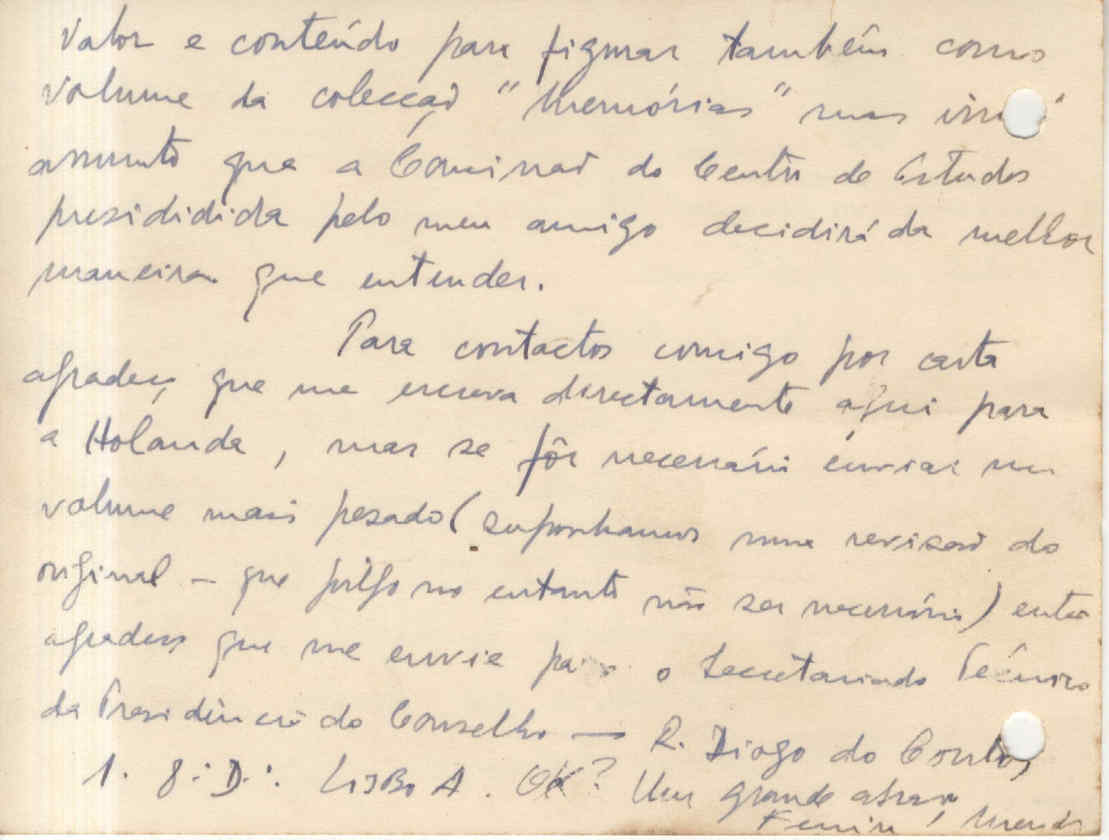 valor e conteúdo para figurar também como
volume da colecção "Memórias" mas isso é
assunto que a Comissão do Centro de Estudos
presididida pelo meu amigo decidirá da melhor
maneira que entender.
Para contactos comigo por carta
agradeço que me escreva directamente aqui para
a Holanda, mas se fôr necessário enviar um
volume mais pesado (suponhamos uma revisão do
original – que julgo no entanto não ser necessário) então
agradeço que me envie para o Secretariado Técnico
da Presidência do Conselho — R. Diogo do Couto,
1. 8.º D.º. LISBOA. OK? Um grande abraço,